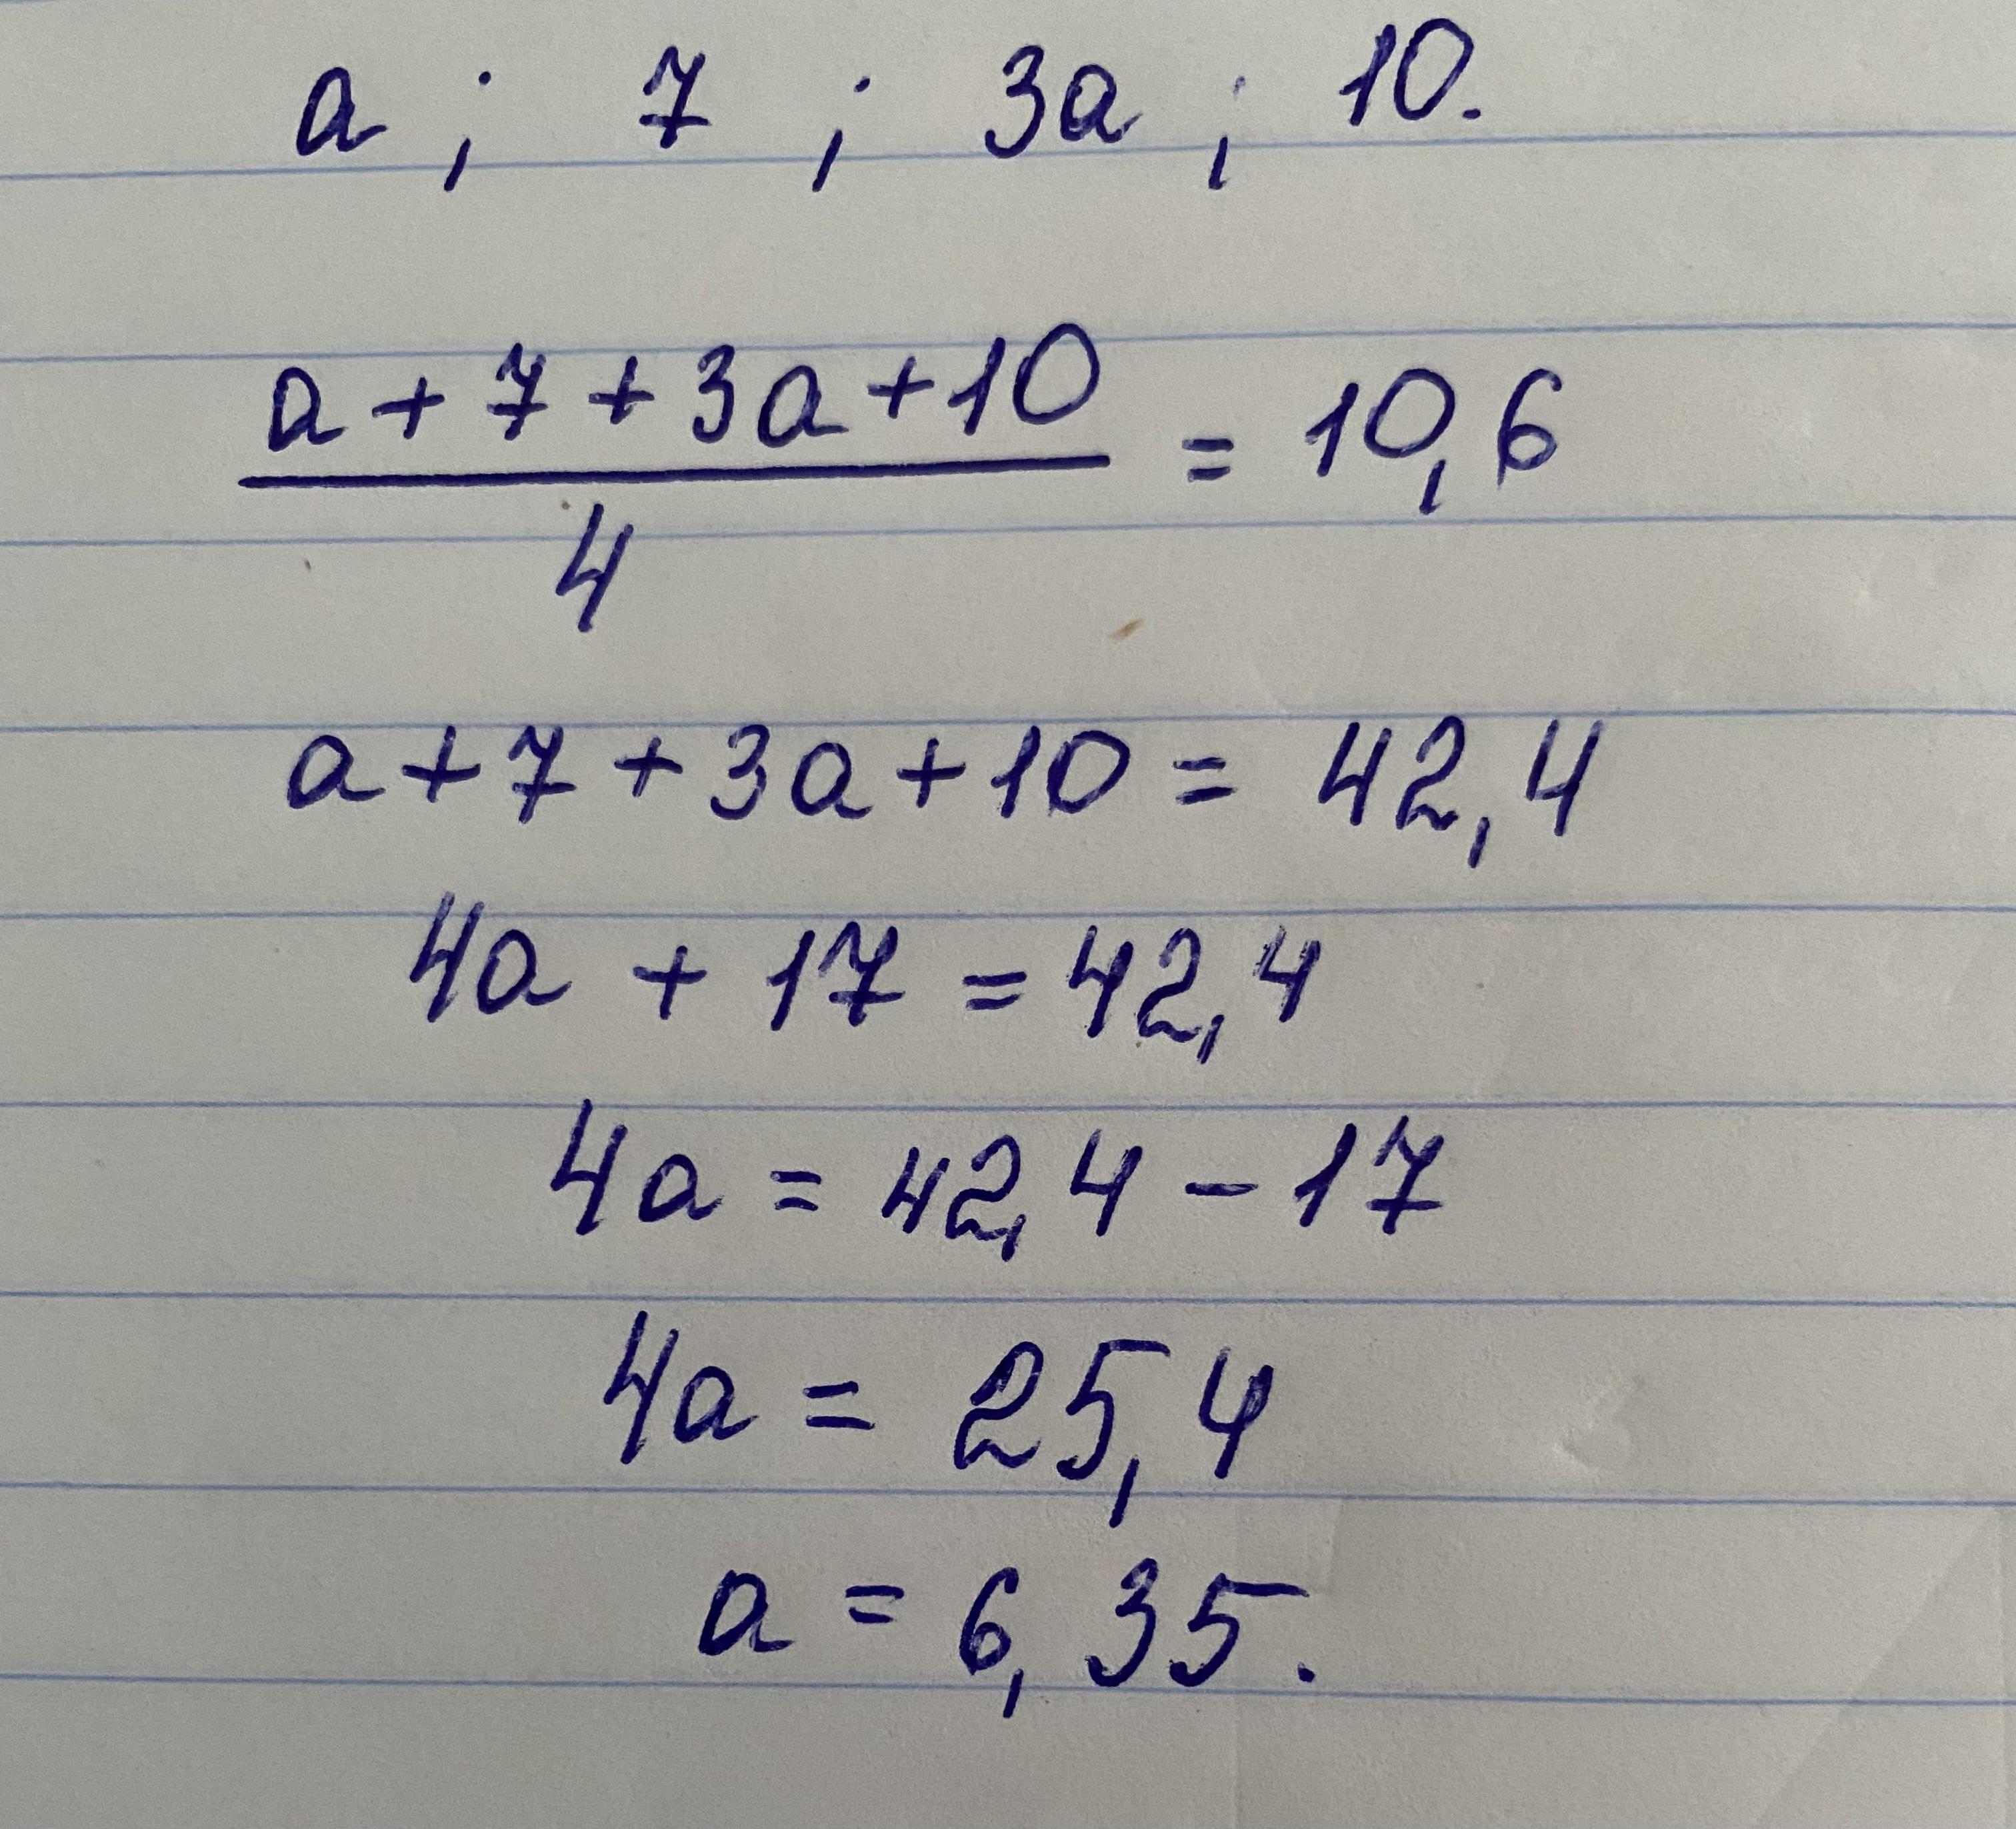 a ; 7 ; 3a ; 10.
a + 7 + 3a + 10
4
= 10,6
a + 7 + 3a + 10 = 42,4
4a + 17 = 42,4
4a = 42,4 - 17
4a = 25,4
a = 6,35.